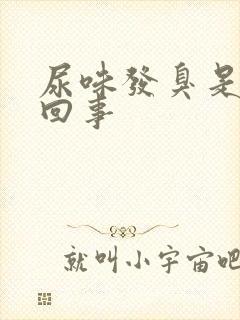 尿味發臭是
回事
就叫小宇宙吧